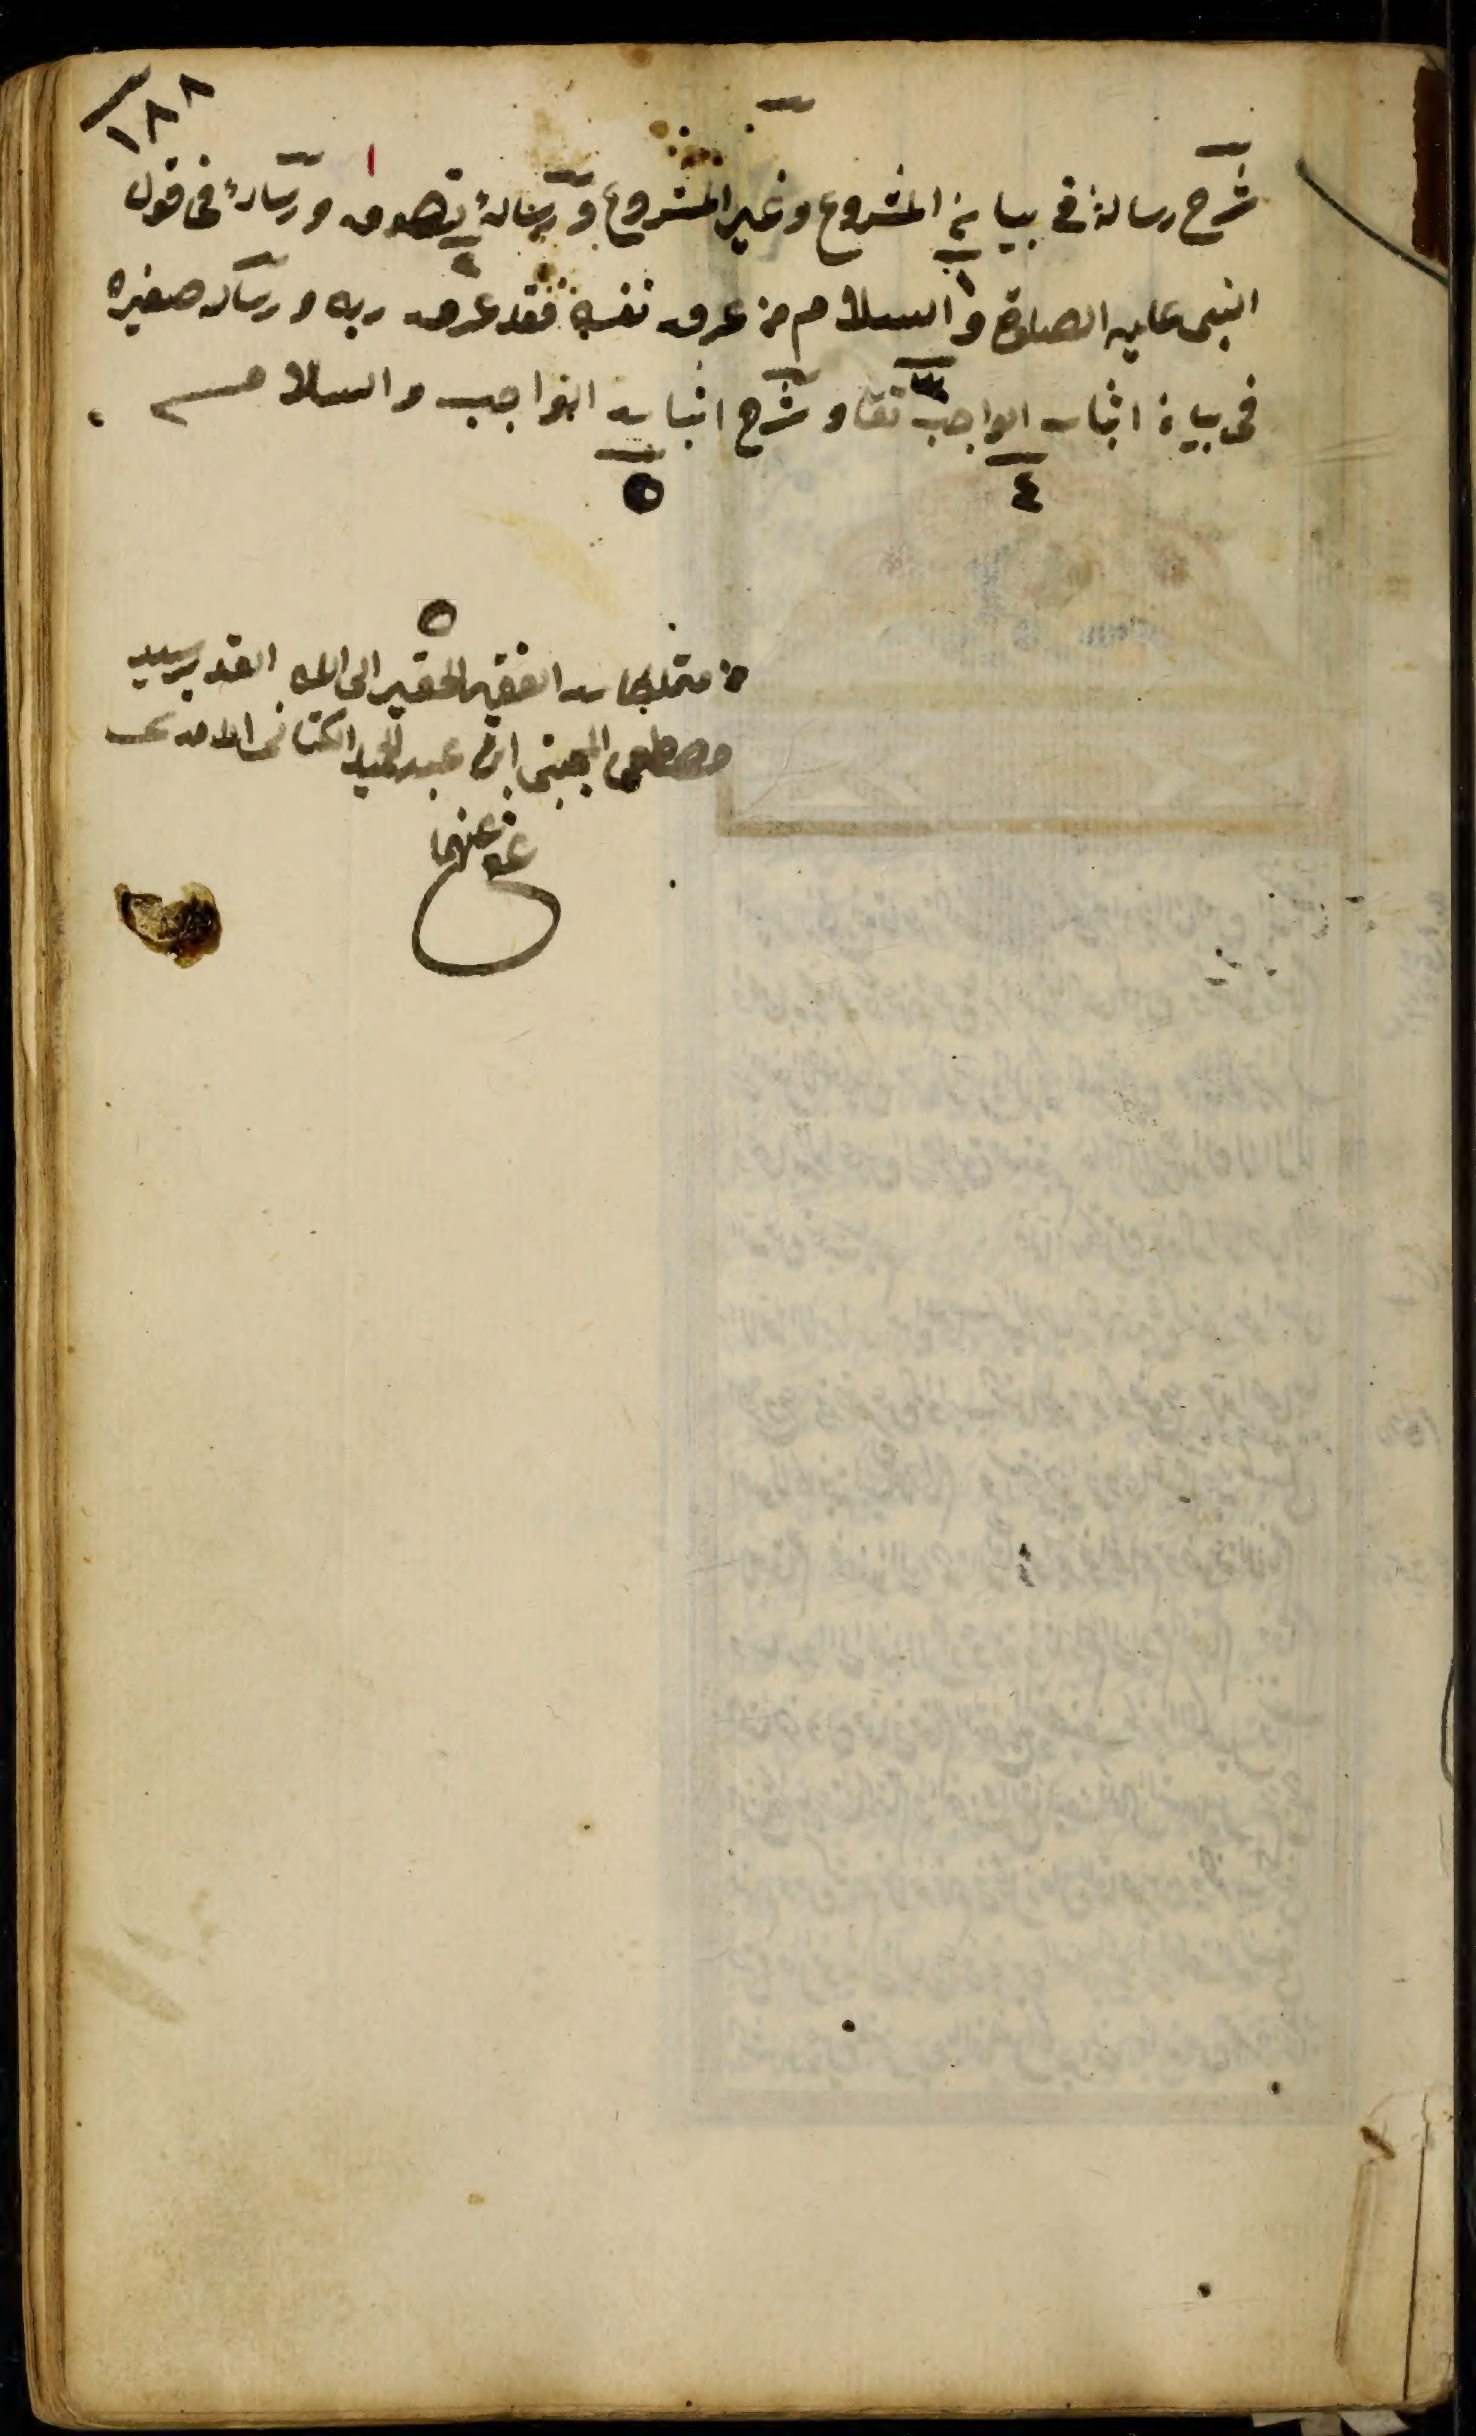 ١٨٨
شرح رسالة في بيان المشروع وغير المشروع و رسالة تصوف و رسالة فى قول
١
٢
النبى عليه الصلوة و السلام من عرف نفسه فقد عرف ربه و رساله صغيره
٣
فى بيان اثبات الواجب تعا و شرح اثبات الواجب والسلام
٤
٥
من متملكات الفقير الحقير الى الله القدير سيد
مصطفى ابن عبد الحميد
عفى عنهما